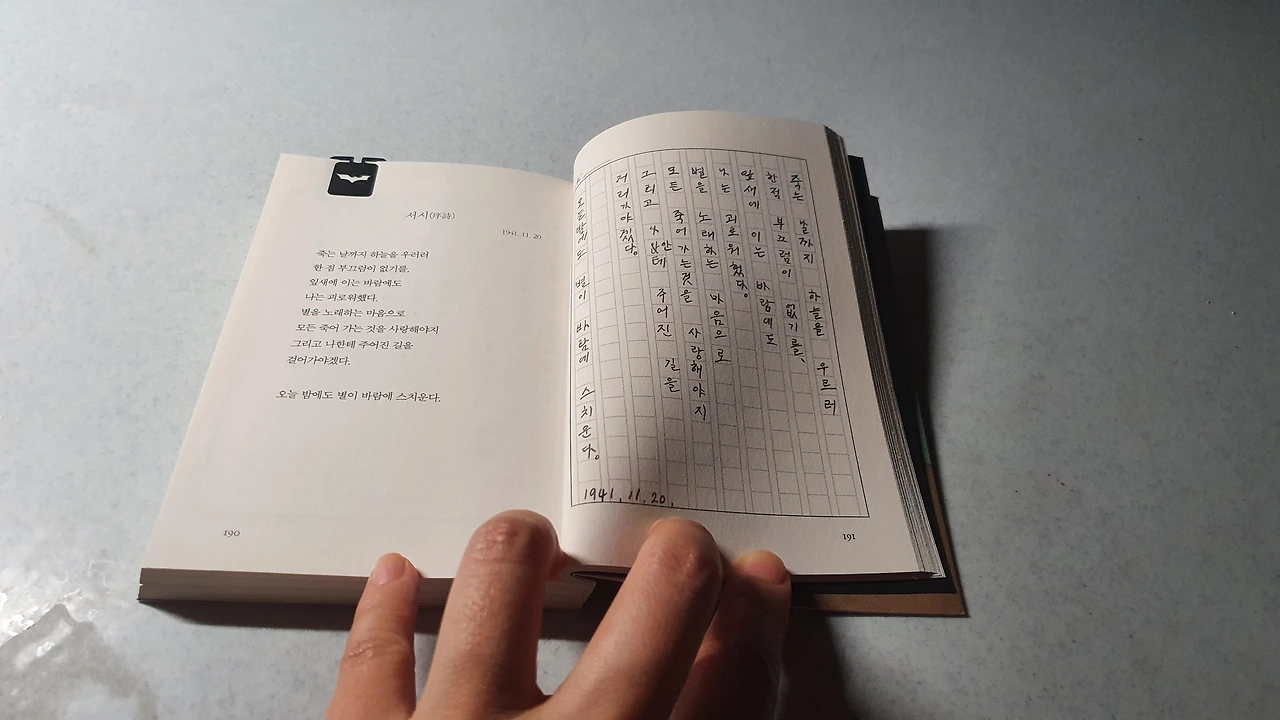 서시(序詩)
1941. 11. 20.
죽는 날까지 하늘을 우러러
한 점 부끄럼이 없기를,
잎새에 이는 바람에도
나는 괴로워했다.
별을 노래하는 마음으로
모든 죽어 가는 것을 사랑해야지
그리고 나한테 주어진 길을
걸어가야겠다.
오늘 밤에도 별이 바람에 스치운다.
190
죽는 날까지 하늘을 우르러
한점 부끄럼이 없기를、
잎새에 이는 바람에도
나는 괴로워했다。
별을 노래하는 마음으로
모든 죽어가는것을 사랑해야지
그리고 나안테 주어진 길을
거러가야겠다。
오늘밤에도 별이 바람에 스치운다。
1941. 11. 20.
191